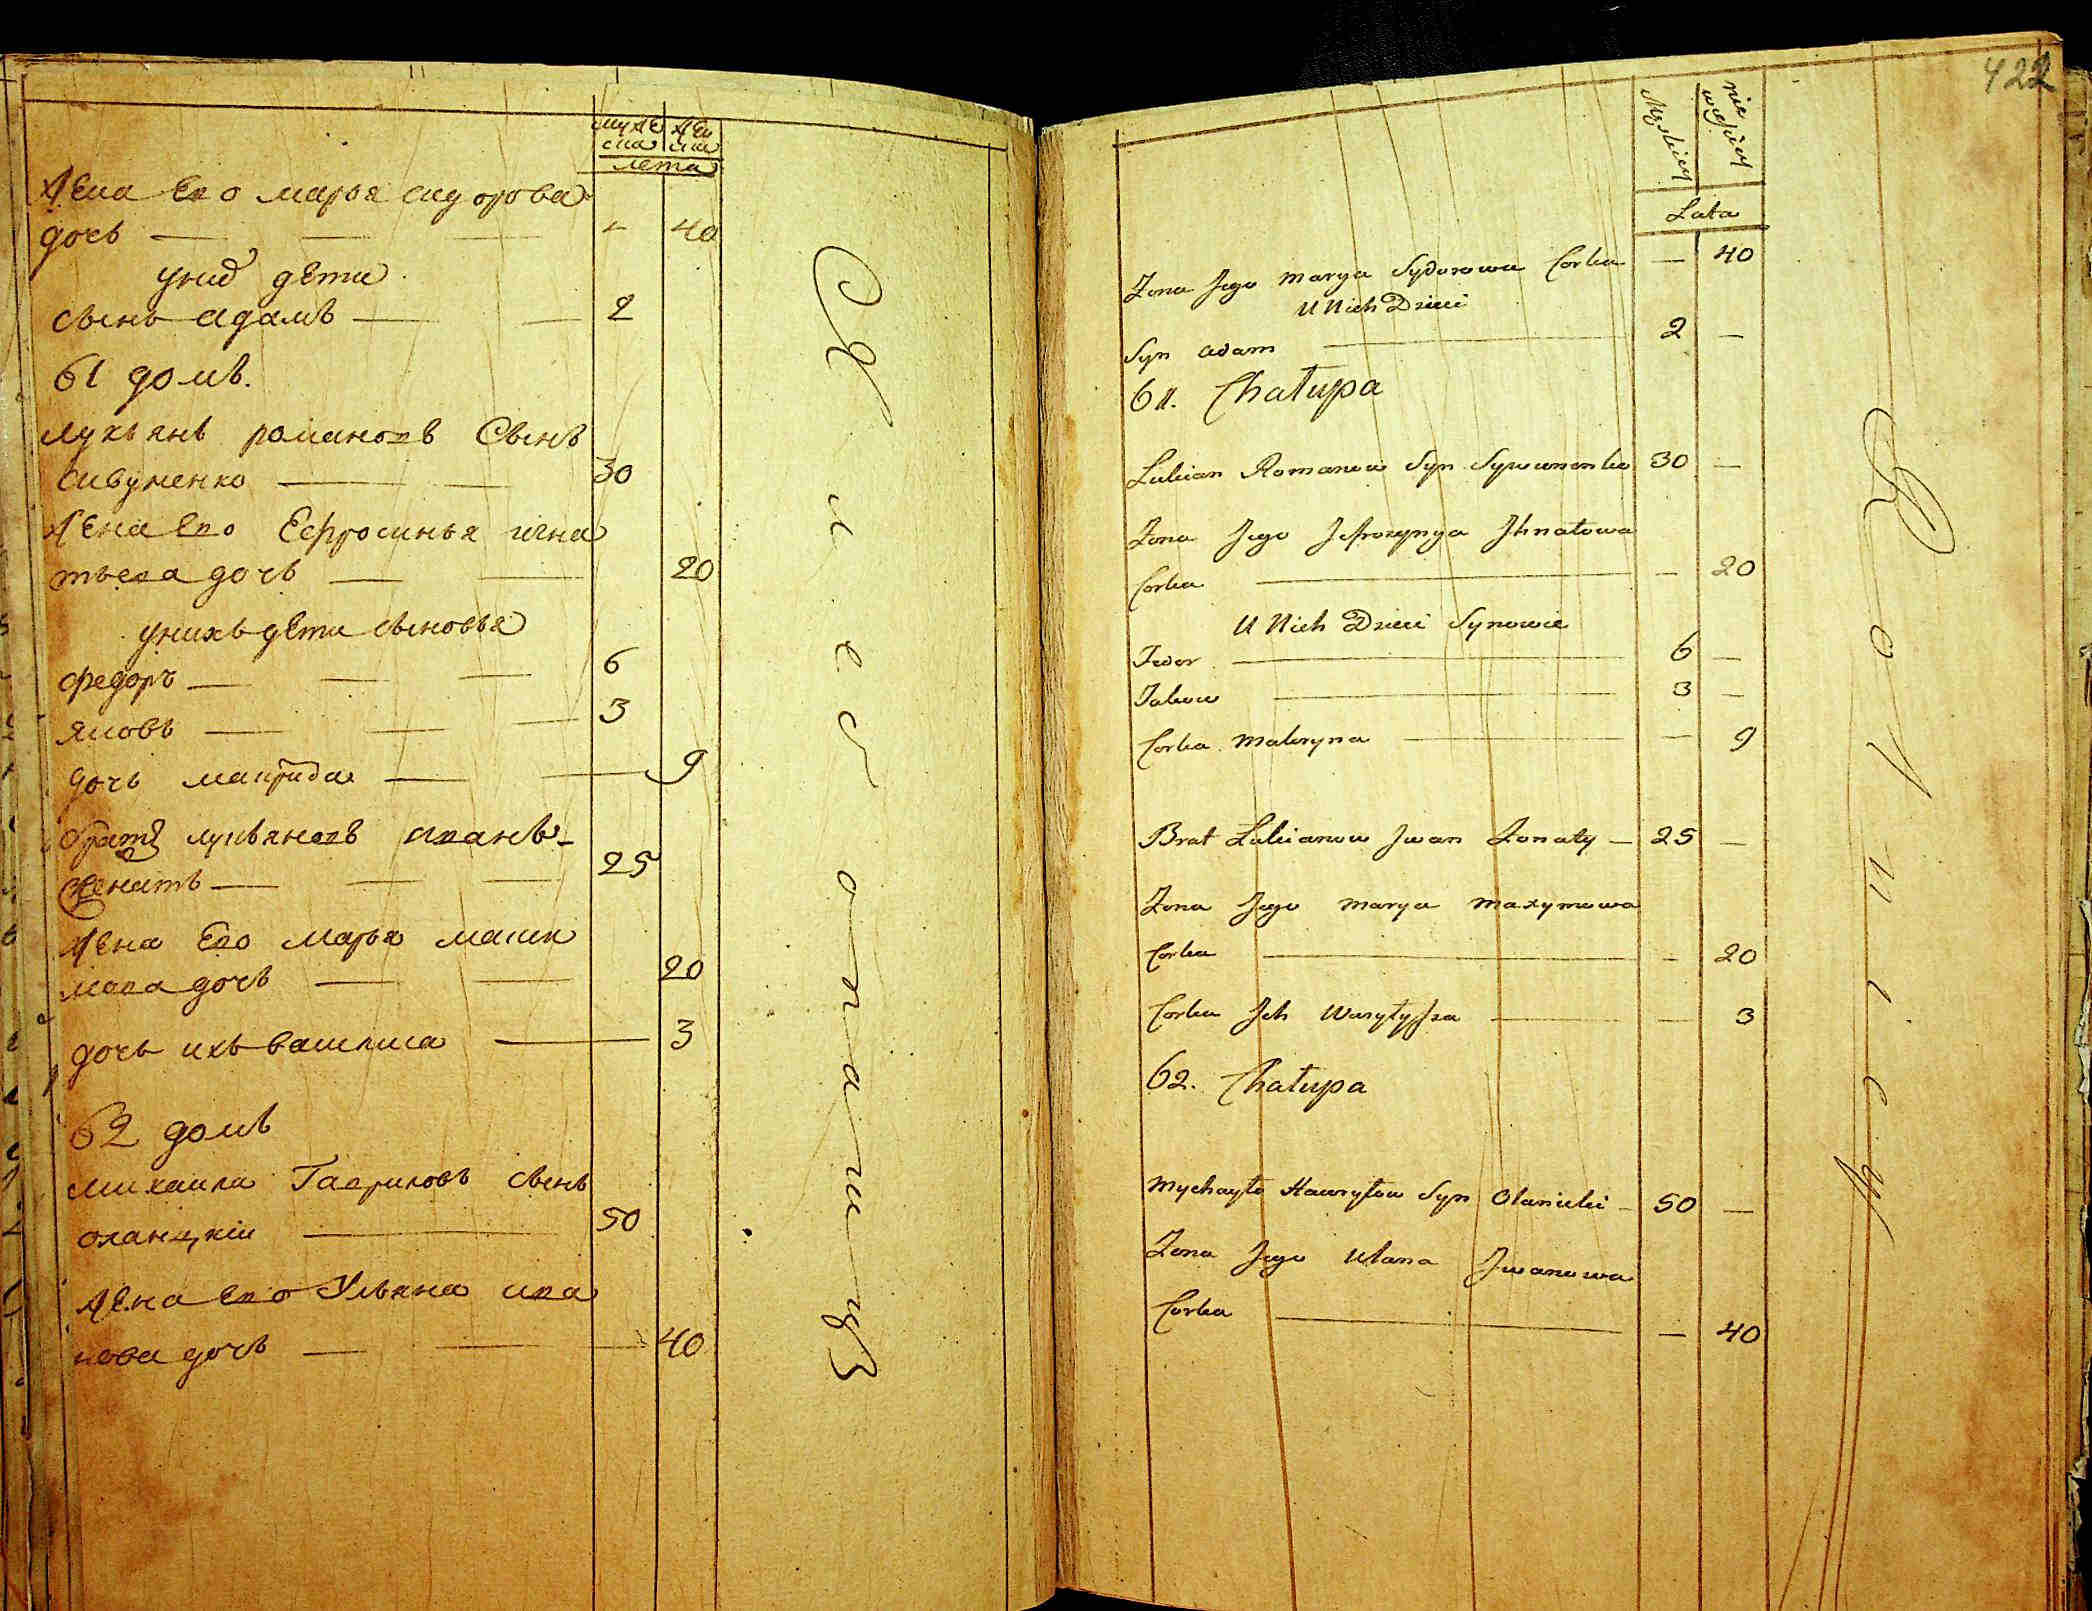 муже
ска
жен
ска
лета
жена ево марья сидорова
дочь — 40
у них дети
сынъ адамъ — 2
61 домъ.
лукьянъ романовъ Сынъ
сивуненко — 30
жена ево Ефросинья игна
тьева дочь — 20
у нихъ дети сыновья
федоръ — 6
яковъ — 3
дочь макрида — 9
братъ лукьяновъ иванъ
женатъ — 25
жена ево марья макси
мова дочь — 20
дочь ихъ василиса — 3
62 домъ
михаила Гавриловъ сынъ
оланцкiи — 50
жена ево Ульяна ива
нова дочь — 40
422
Męskiey
niewieściey
Lata
Zona Jego Marya Sydorowa Corka — 40
U Nich Dzieci
Syn Adam — 2 —
61. Chałupa
Lukian Romanow Syn Sywunenko 30 —
Zona Jego Jefrozynya Jhnatowa
Corka — 20
U Nich Dzieci Synowie
Fedor — 6 —
Jakow — 3 —
Corka Makryna — 9
Brat Lukianow Jwan Zonaty — 25 —
Zona Jego Marya Maxymowa
Corka — 20
Corka Jch Wasyłyssa — 3
62. Chałupa
Mychayło Hawryłow Syn Olanicki — 50 —
Zona Jego Ulana Jwanowa
Corka — 40
Rolnicy